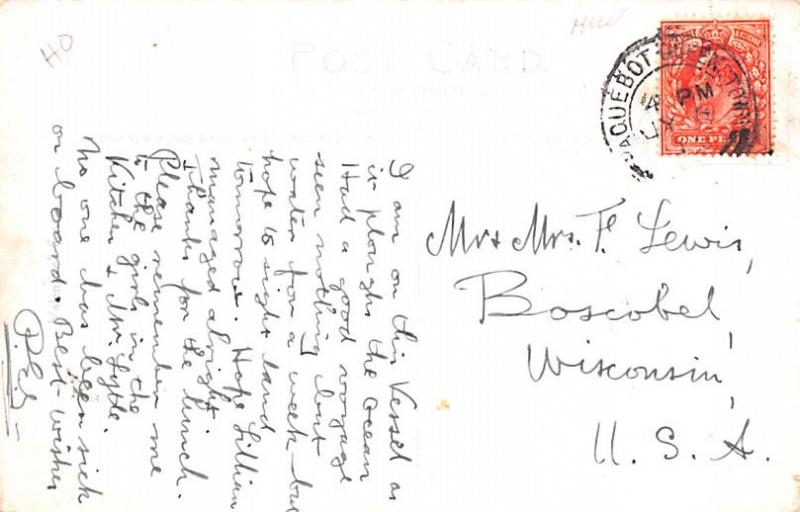 HO
POST CARD
PAQUEBOT QUEENSTOWN
4 PM
ONE PE
I am on this Vessel as
is ploughs the Ocean
Had a good voyage
seen nothing but
water for a week - but
hope to sight land
tomorrow. Hope Lillian
managed alright.
Thanks for the lunch.
Please remember me
to the girls in the
Kitchen & Mr. Lytle.
No one has been sick
on board. Best wishes
Mr & Mrs. F. Lewis,
Boscobel,
Wisconsin,
U. S. A.